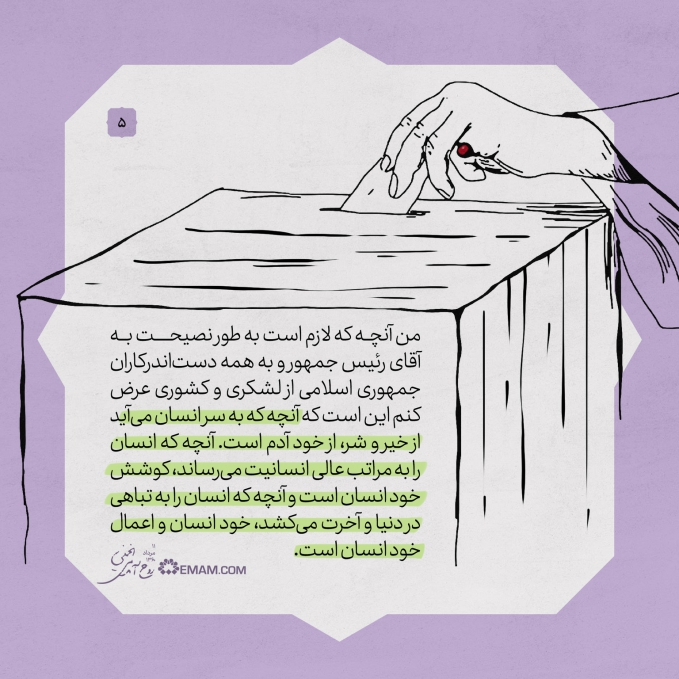 ۵
من آنچه که لازم است به طور نصیحت به
آقای رئیس جمهور و به همه دست‌اندرکاران
جمهوری اسلامی از لشکری و کشوری عرض
کنم این است که آنچه که به سر انسان می‌آید
از خیر و شر، از خود آدم است. آنچه که انسان
را به مراتب عالی انسانیت می‌رساند، کوشش
خود انسان است و آنچه که انسان را به تباهی
در دنیا و آخرت می‌کشد، خود انسان و اعمال
خود انسان است.
EMAM.COM